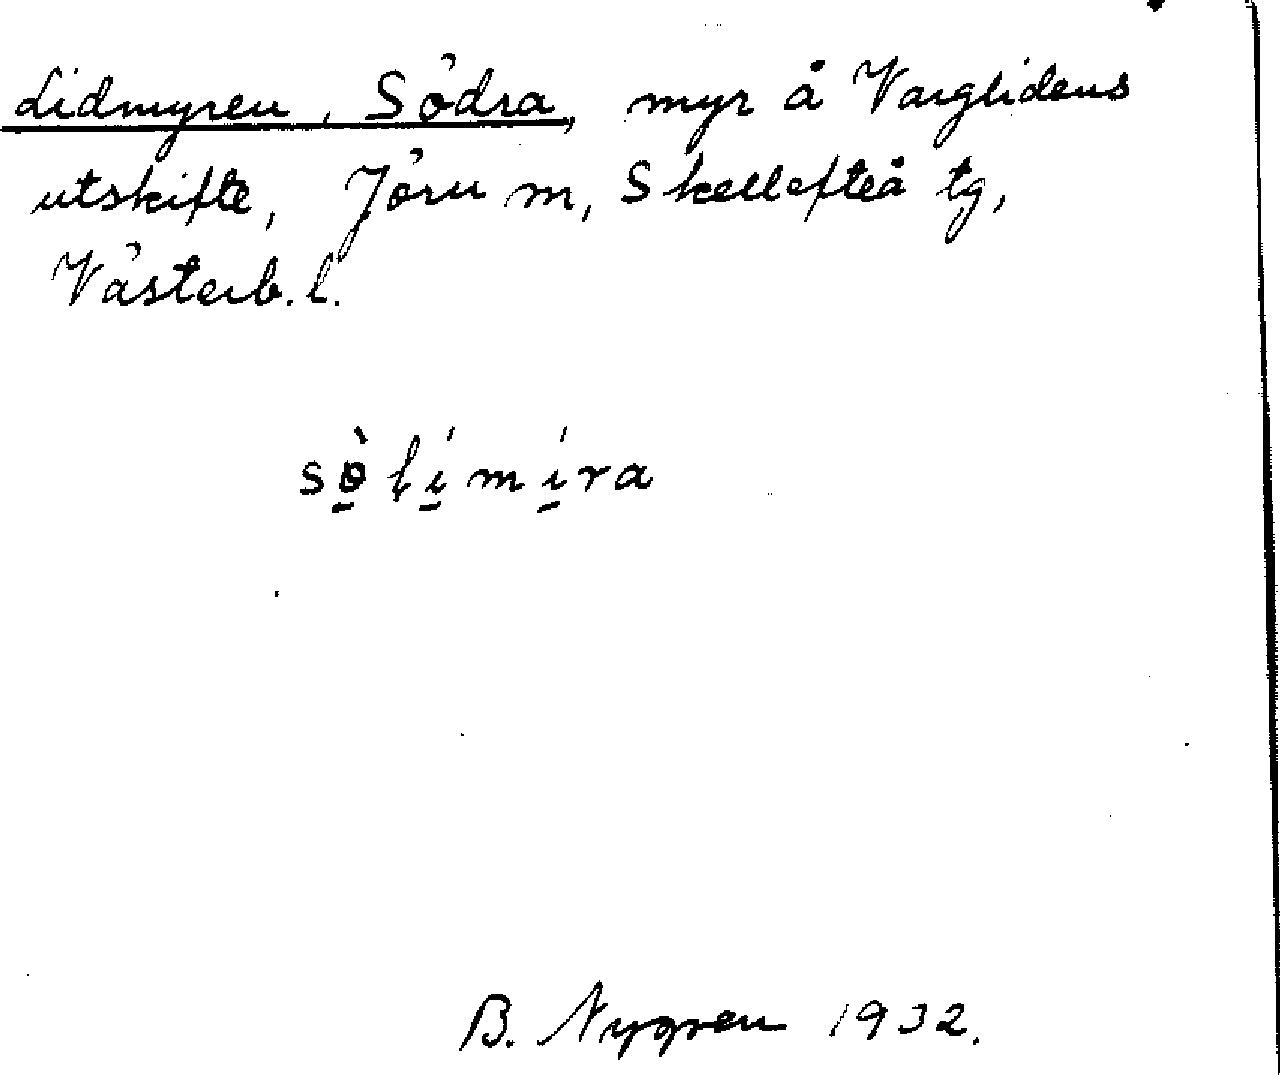 Lidmyren, Södra, myr å Varglidens
utskifte, Jörn m, Skellefteå tg,
Västerb. l.
sö̀límíra
B. Nygren 1932.